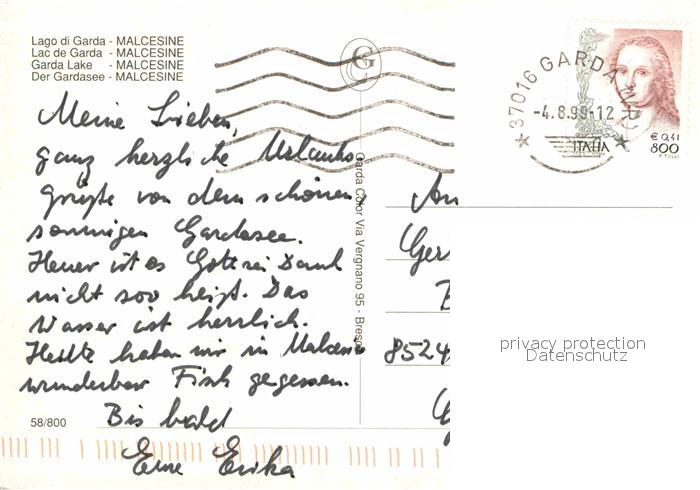 Lago di Garda - MALCESINE
Lac de Garda - MALCESINE
Garda Lake - MALCESINE
Der Gardasee - MALCESINE
Meine Lieben,
ganz herzliche Urlaubs
grüße von dem schönen,
sonnigen Gardasee.
Heuer ist es Gott sei Dank
nicht soo heiß. Das
Wasser ist herrlich.
Heute haben wir in Malcesine
wunderbar Fisch gegessen.
Bis bald
Eure Erika
58/800
G
Garda Color Via Vergnano 95 - Bresc
37016 GARDA
-4.8.99-12
ITALIA
€ 0,41
800
F. TULLI
An
Ger
8524
G
privacy protection
Datenschutz